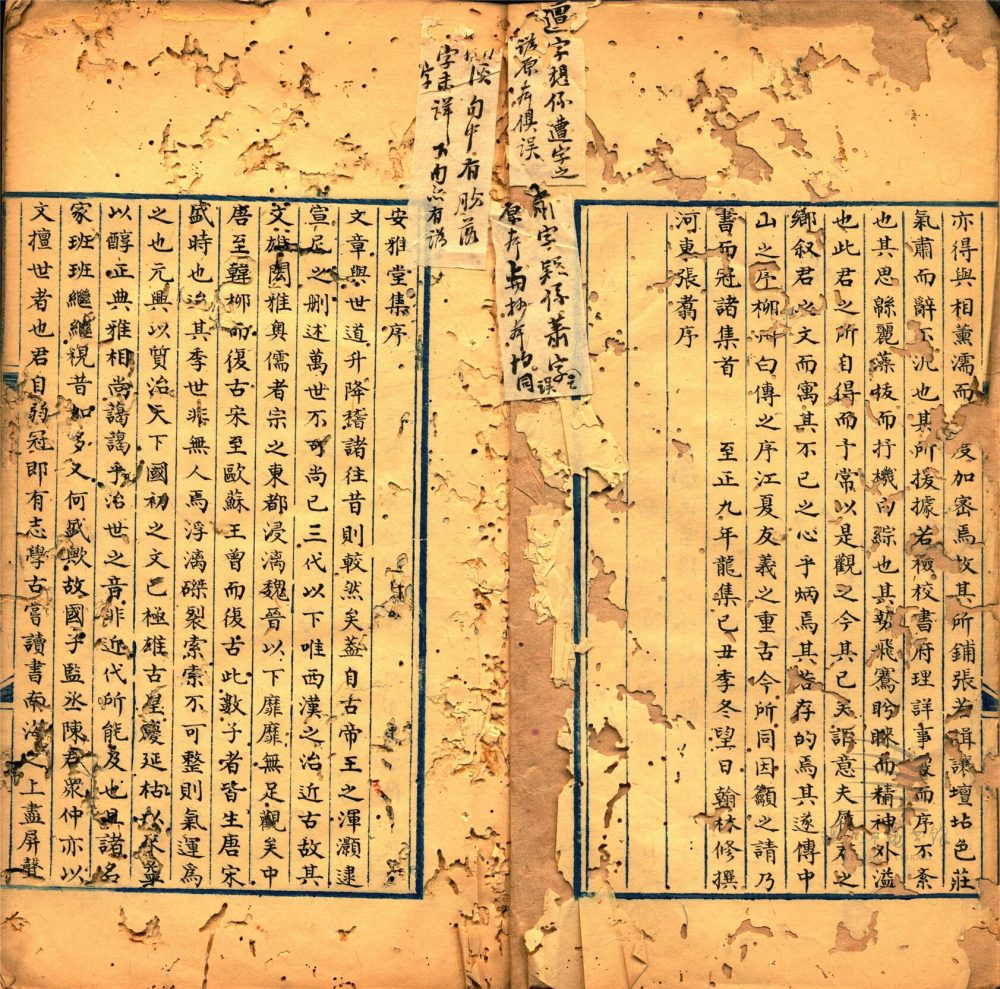 亦得與相薰濡而 反加密焉故其所鋪張若揖讓壇坫色莊
氣肅而辭不汎也其所援據若檢校書府理詳事覈而序不紊
也其思緜麗藻拔而抒機白綜也其勢飛騫盻睞而精神外溢
也此君之所自得而予常以是觀之今其已矣詎意夫
鄉叙君之文而寓其不已之心乎炳焉其若存的焉其遂傳中
山之序柳河白傳之序江夏友義之重古今所同因顲之請乃
書而冠諸集首 至正九年龍集己丑季冬望日翰林修撰
河東張翥序
邅字想係遭字之
誤原本俱誤
肅字疑係萧字之誤
原本与抄本均同
句中有脱落
字未詳下句亦有誤
字
安雅堂集序
文章與世道升降稽諸往昔則較然矣葢自古帝王之渾灝逮
宣尼之刪述萬世不可尚已三代以下唯西漢之治近古故其
文雄閎雅奥儒者宗之東都浸漓魏晉以下靡靡無足觀矣中
唐至韓柳而復古宋至歐蘇王曾而復古此數子者皆生唐宋
盛時也迨其季世非無人焉浮漓磔裂索索不可整則氣運為
之也元興以質治天下國初之文已極雄古皇慶延祐以來
以醇正典雅相尚藹藹乎治世之音非近代所能及也且諸名
家班班繼繼視昔如多又何盛歟故國子監丞陳君衆仲亦以
文擅世者也君自弱冠即有志學古嘗讀書南海之上盡屏聲